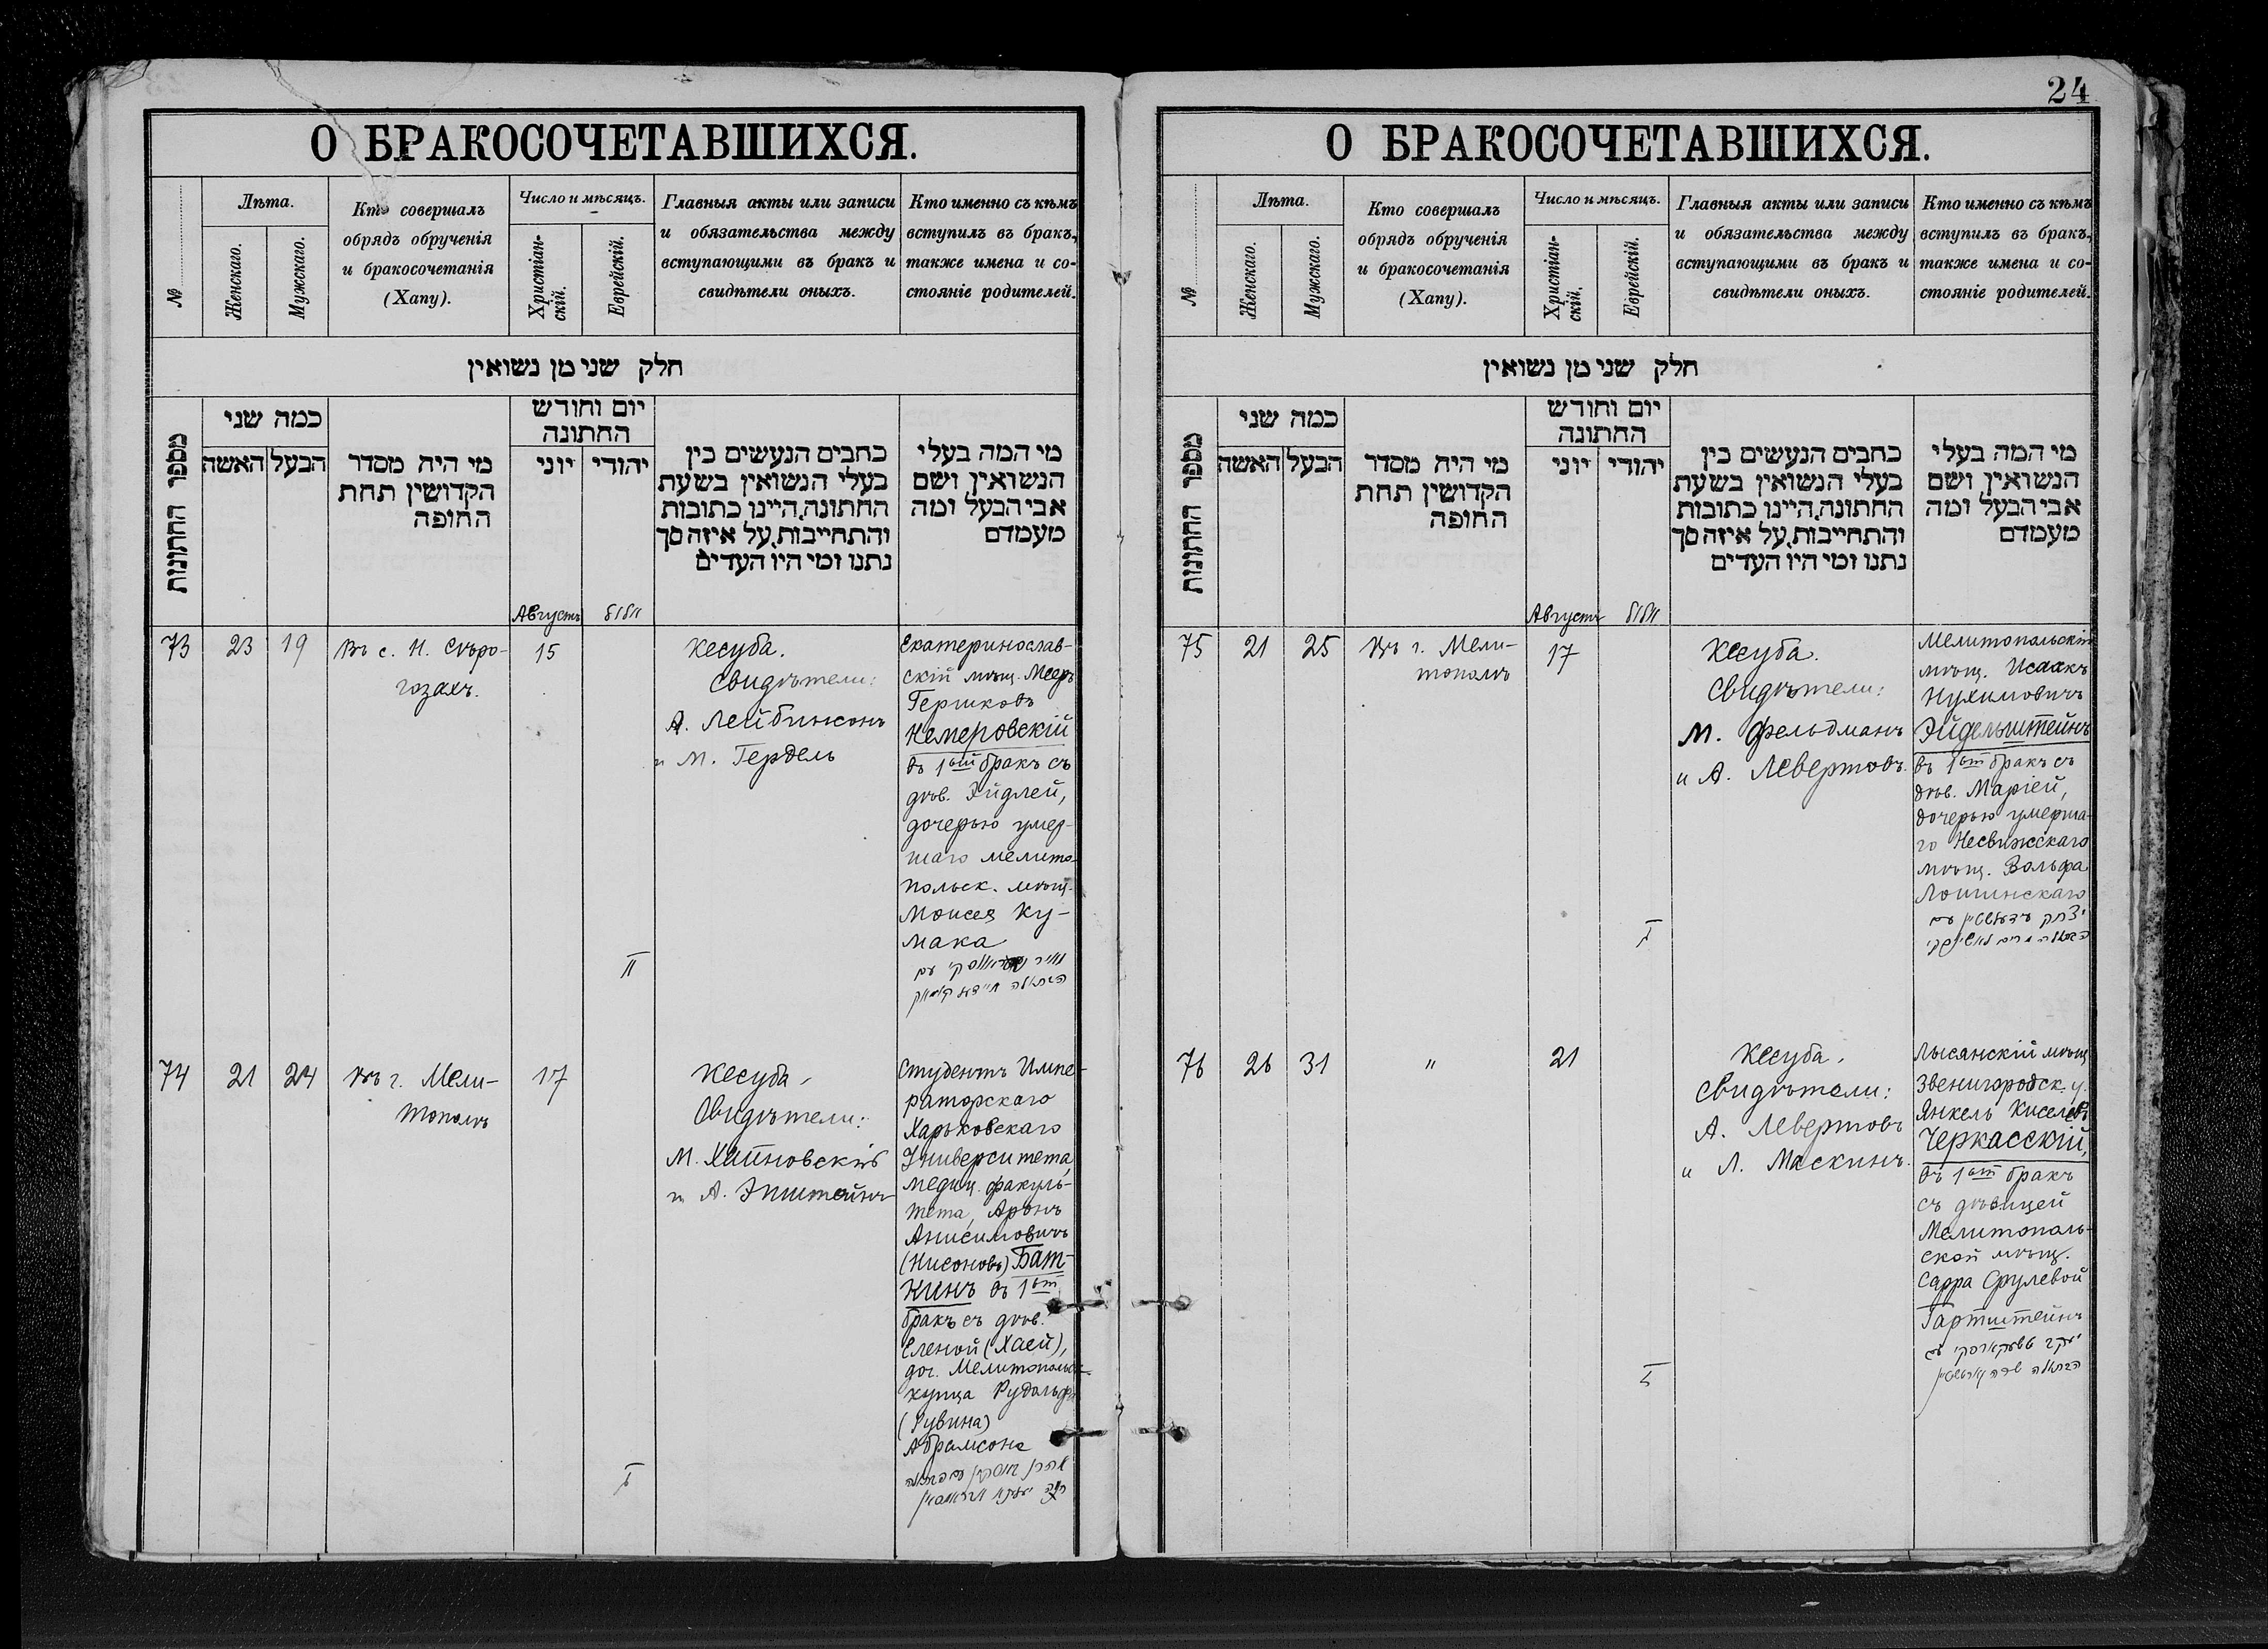 24
О БРАКОСОЧЕТАВШИХСЯ.
№
Лѣта.
Женскаго.
Мужскаго.
Кто совершалъ
обрядъ обрученія
и бракосочетанія
(Хапу).
Число и мѣсяцъ.
Христіан-
скій.
Еврейскій.
Главныя акты или записи
и обязательства между
вступающими въ бракъ и
свидѣтели оныхъ.
Кто именно съ кѣмъ
вступилъ въ бракъ,
также имена и со-
стояніе родителей.
חלק שני מן נשואין
מספר החתונות
כמה שני
האשה
הבעל
מי היה מסדר
הקדושין תחת
החופה
יום וחודש
החתונה
יוני
יהודי
כתבים הנעשים בין
בעלי הנשואין בשעת
החתונה, היינו כתובות
והתחייבות, על איזה סך
נתנו ומי היו העדים
מי המה בעלי
הנשואין ושם
אבי הבעל ומה
מעמדם
Августъ
אלול
73
23
19
Въ с. Н. Сѣро-
гозахъ.
15
Кесуба.
Свидѣтели:
А. Лейбинсонъ
и М. Гердель
Екатеринослав-
скій мѣщ. Мееръ
Гершковъ
Немеровскій
въ 1ый бракъ съ
дѣв. Эйдлей,
дочерью умер-
шаго мелито-
польск. мѣщ.
Моисея Ку-
мака
הבתולה
II
74
21
24
Въ г. Мели-
тополѣ
17
Кесуба.
Свидѣтели:
М. Хайновскій
и А. Эпштейнъ
Студентъ Импе-
раторскаго
Харьковскаго
Университета,
медиц. факуль-
тета, Аронъ
Анисимовичъ
(Нисоновъ) Бат-
кинъ въ 1ый
бракъ съ дѣв.
Еленой (Хаей),
доч. Мелитопольск.
купца Рудольфа
(Рувина)
Абрамсона
אהרן באטקין עם הבתולה
I
О БРАКОСОЧЕТАВШИХСЯ.
№
Лѣта.
Женскаго.
Мужскаго.
Кто совершалъ
обрядъ обрученія
и бракосочетанія
(Хапу).
Число и мѣсяцъ.
Христіан-
скій.
Еврейскій.
Главныя акты или записи
и обязательства между
вступающими въ бракъ и
свидѣтели оныхъ.
Кто именно съ кѣмъ
вступилъ въ бракъ,
также имена и со-
стояніе родителей.
חלק שני מן נשואין
מספר החתונות
כמה שני
האשה
הבעל
מי היה מסדר
הקדושין תחת
החופה
יום וחודש
החתונה
יוני
יהודי
כתבים הנעשים בין
בעלי הנשואין בשעת
החתונה, היינו כתובות
והתחייבות, על איזה סך
נתנו ומי היו העדים
מי המה בעלי
הנשואין ושם
אבי הבעל ומה
מעמדם
Августъ
אלול
75
21
25
Въ г. Мели-
тополѣ
17
Кесуба.
Свидѣтели:
М. Фельдманъ
и А. Левертовъ.
Мелитопольскій
мѣщ. Исаакъ
Нухимовичъ
Эйдельштейнъ
въ 1ый бракъ съ
дѣв. Маріей,
дочерью умерша-
го Несвижскаго
мѣщ. Вольфа
Лошинскаго
יצחק אידעלשטיין עם
הבתולה מרים לאשינסקי
I
76
26
31
"
21
Кесуба.
Свидѣтели:
А. Левертовъ
и Л. Маскинъ.
Лысянскій мѣщ.
Звенигородск. у.
Янкель Киселевъ
Черкасскій,
въ 1ый бракъ
съ дѣвицей
Мелитополь-
ской мѣщ.
Сарра Срулевой
Гартштейнъ
יעקב טשערקאסקי עם
הבתולה שרה גארטשטיין
I